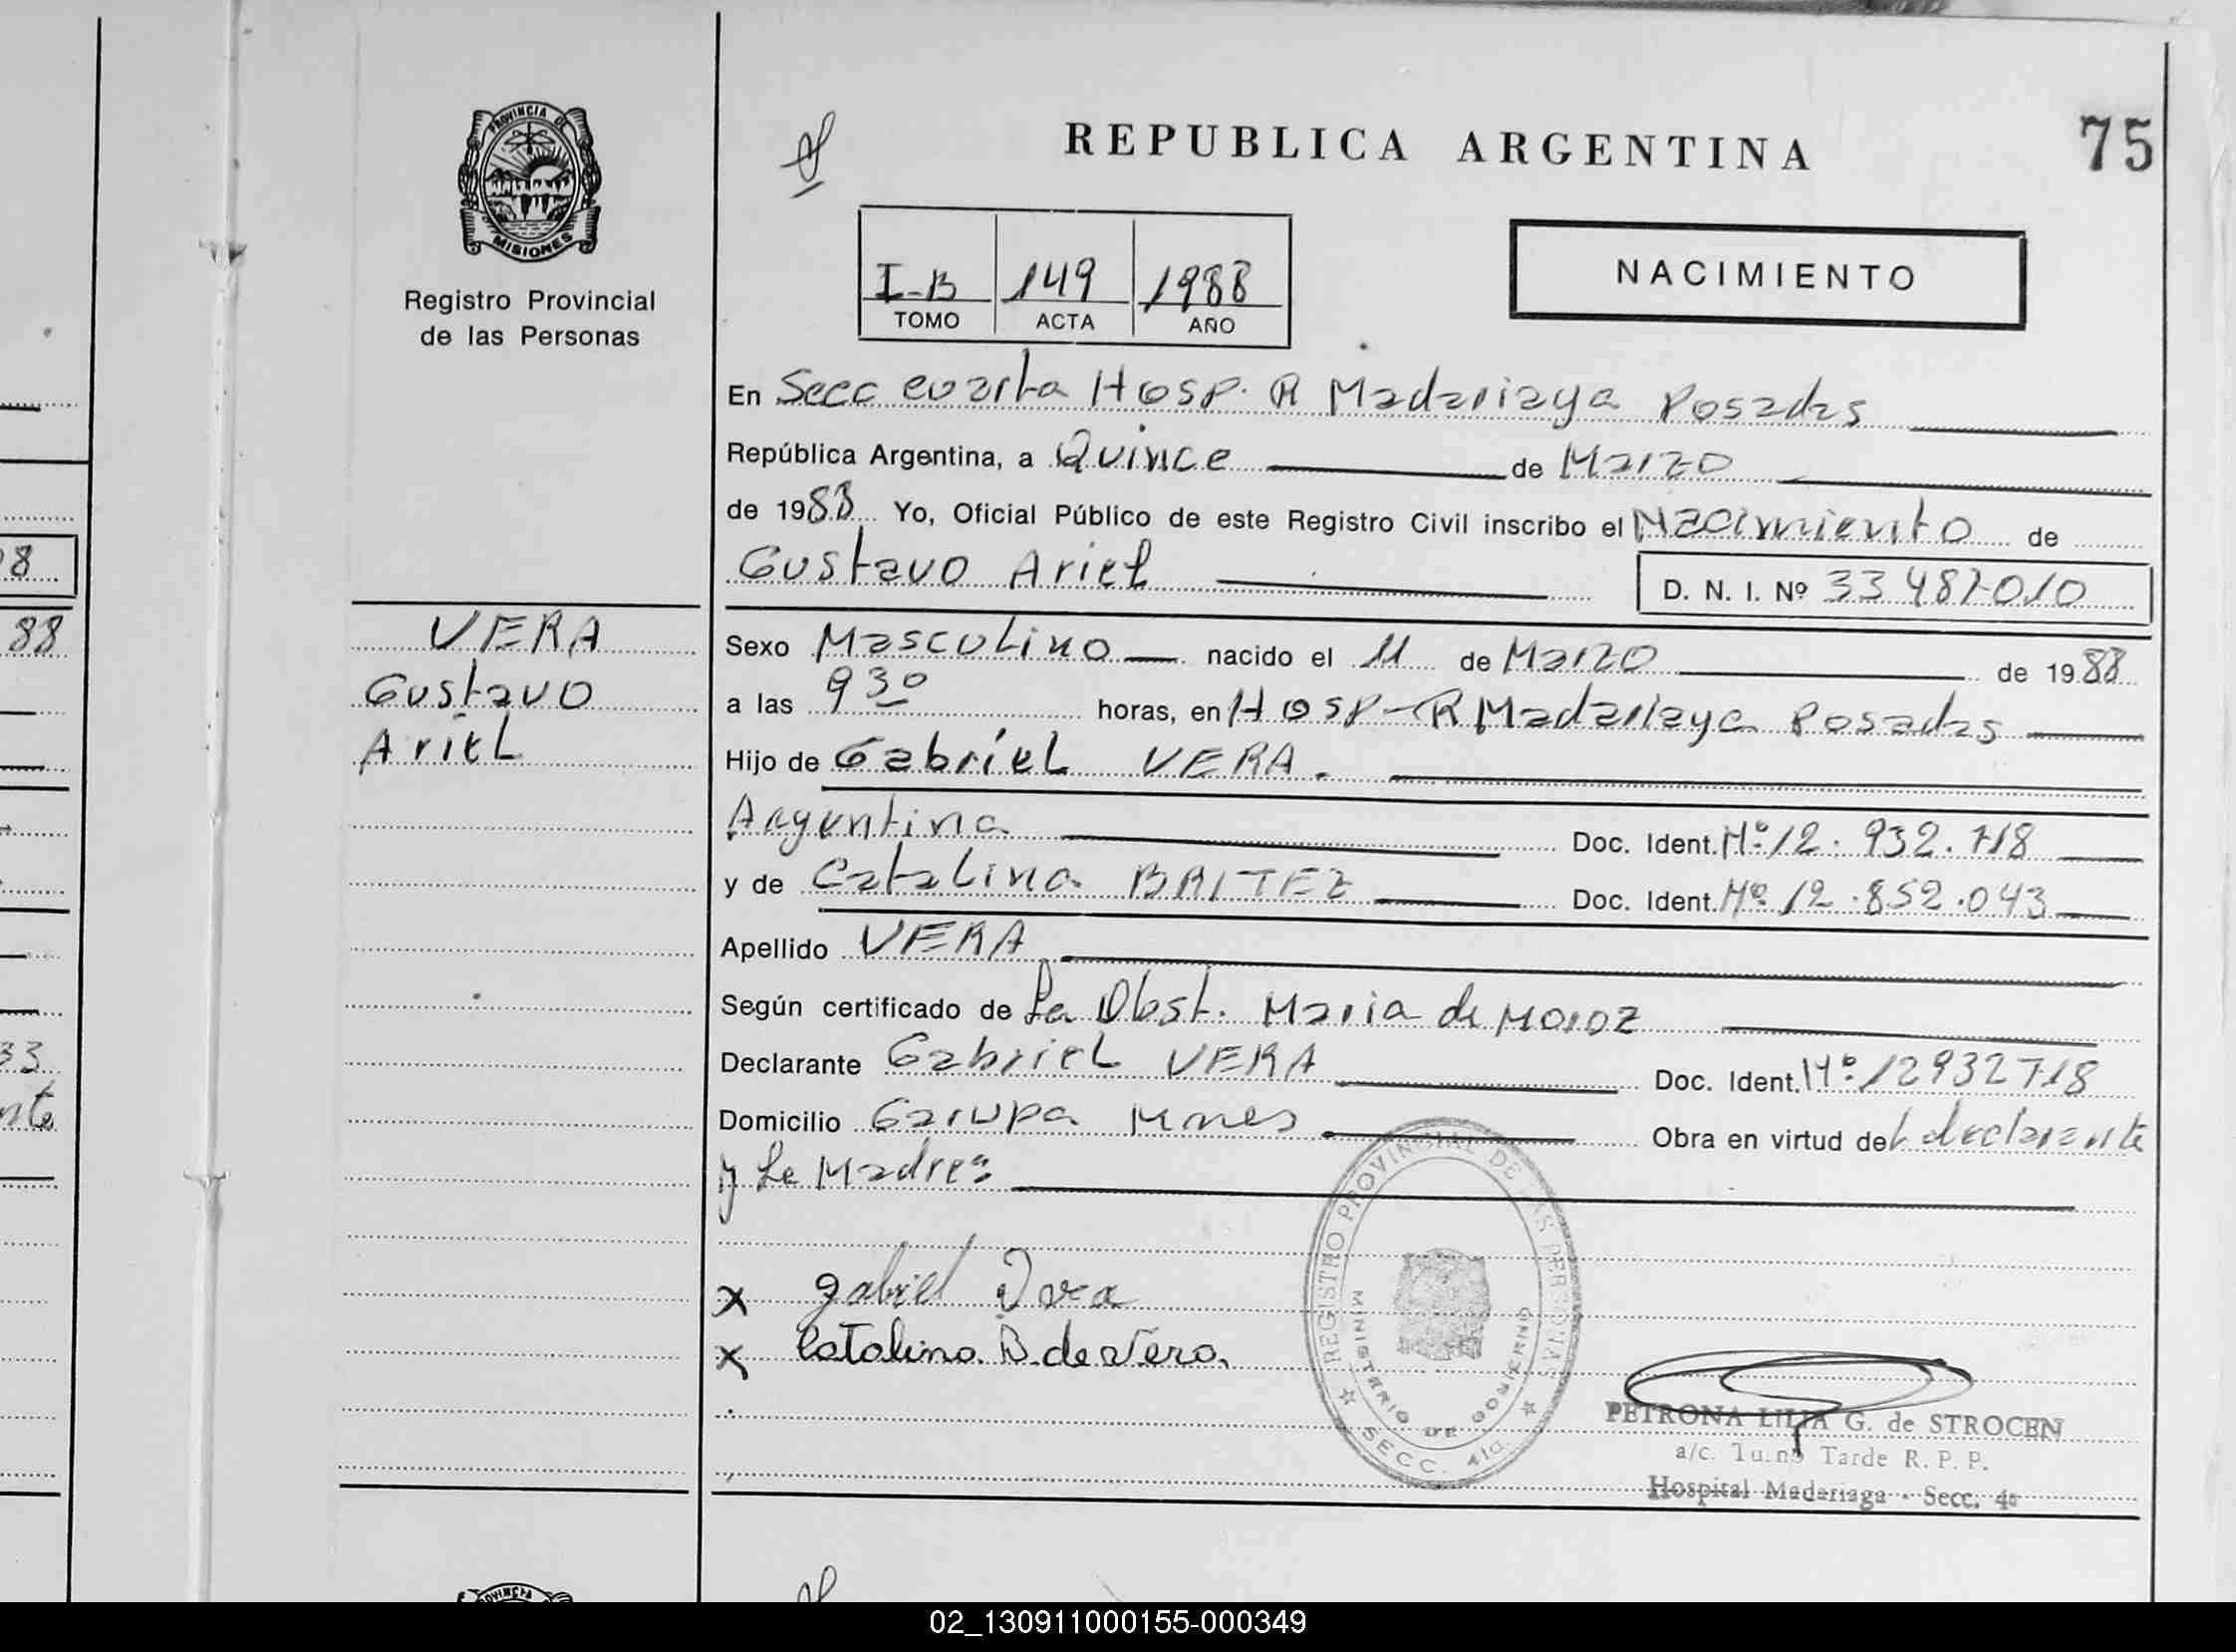 PROVINCIA DE
MISIONES
Registro Provincial
de las Personas
REPUBLICA ARGENTINA
75
I-B 149 1988
TOMO ACTA AÑO
NACIMIENTO
En Secc cuarta Hosp. R Madariaga Posadas
República Argentina, a Quince de Marzo
de 1988 Yo, Oficial Público de este Registro Civil inscribo el Nacimiento de
Gustavo Ariel
D. N. I. Nº 33 487010
VERA
Gustavo
Ariel
Sexo Masculino nacido el 11 de Marzo de 1988
a las 9 30 horas, en Hosp-R Madariaga Posadas
Hijo de Gabriel VERA.
Argentina Doc. Ident. Nº 12.932.718
y de Catalina BRITEZ Doc. Ident. Nº 12.852.043
Apellido VERA
Según certificado de La Obst. Maria de Moroz
Declarante Gabriel VERA Doc. Ident. Nº 12932718
Domicilio Garupa Mnes Obra en virtud del declarante
y La Madre
x gabriel Vera
x Catalina B. de Vera.
REGISTRO PROVINCIAL DE LAS PERSONAS
MINISTERIO DE GOBIERNO
SECC. 4ta.
PETRONA LILIA G. de STROCEN
a/c. Turno Tarde R. P. P.
Hospital Madariaga - Secc. 4ª
8
88
33
nte
PROVINCIA
02_130911000155-000349